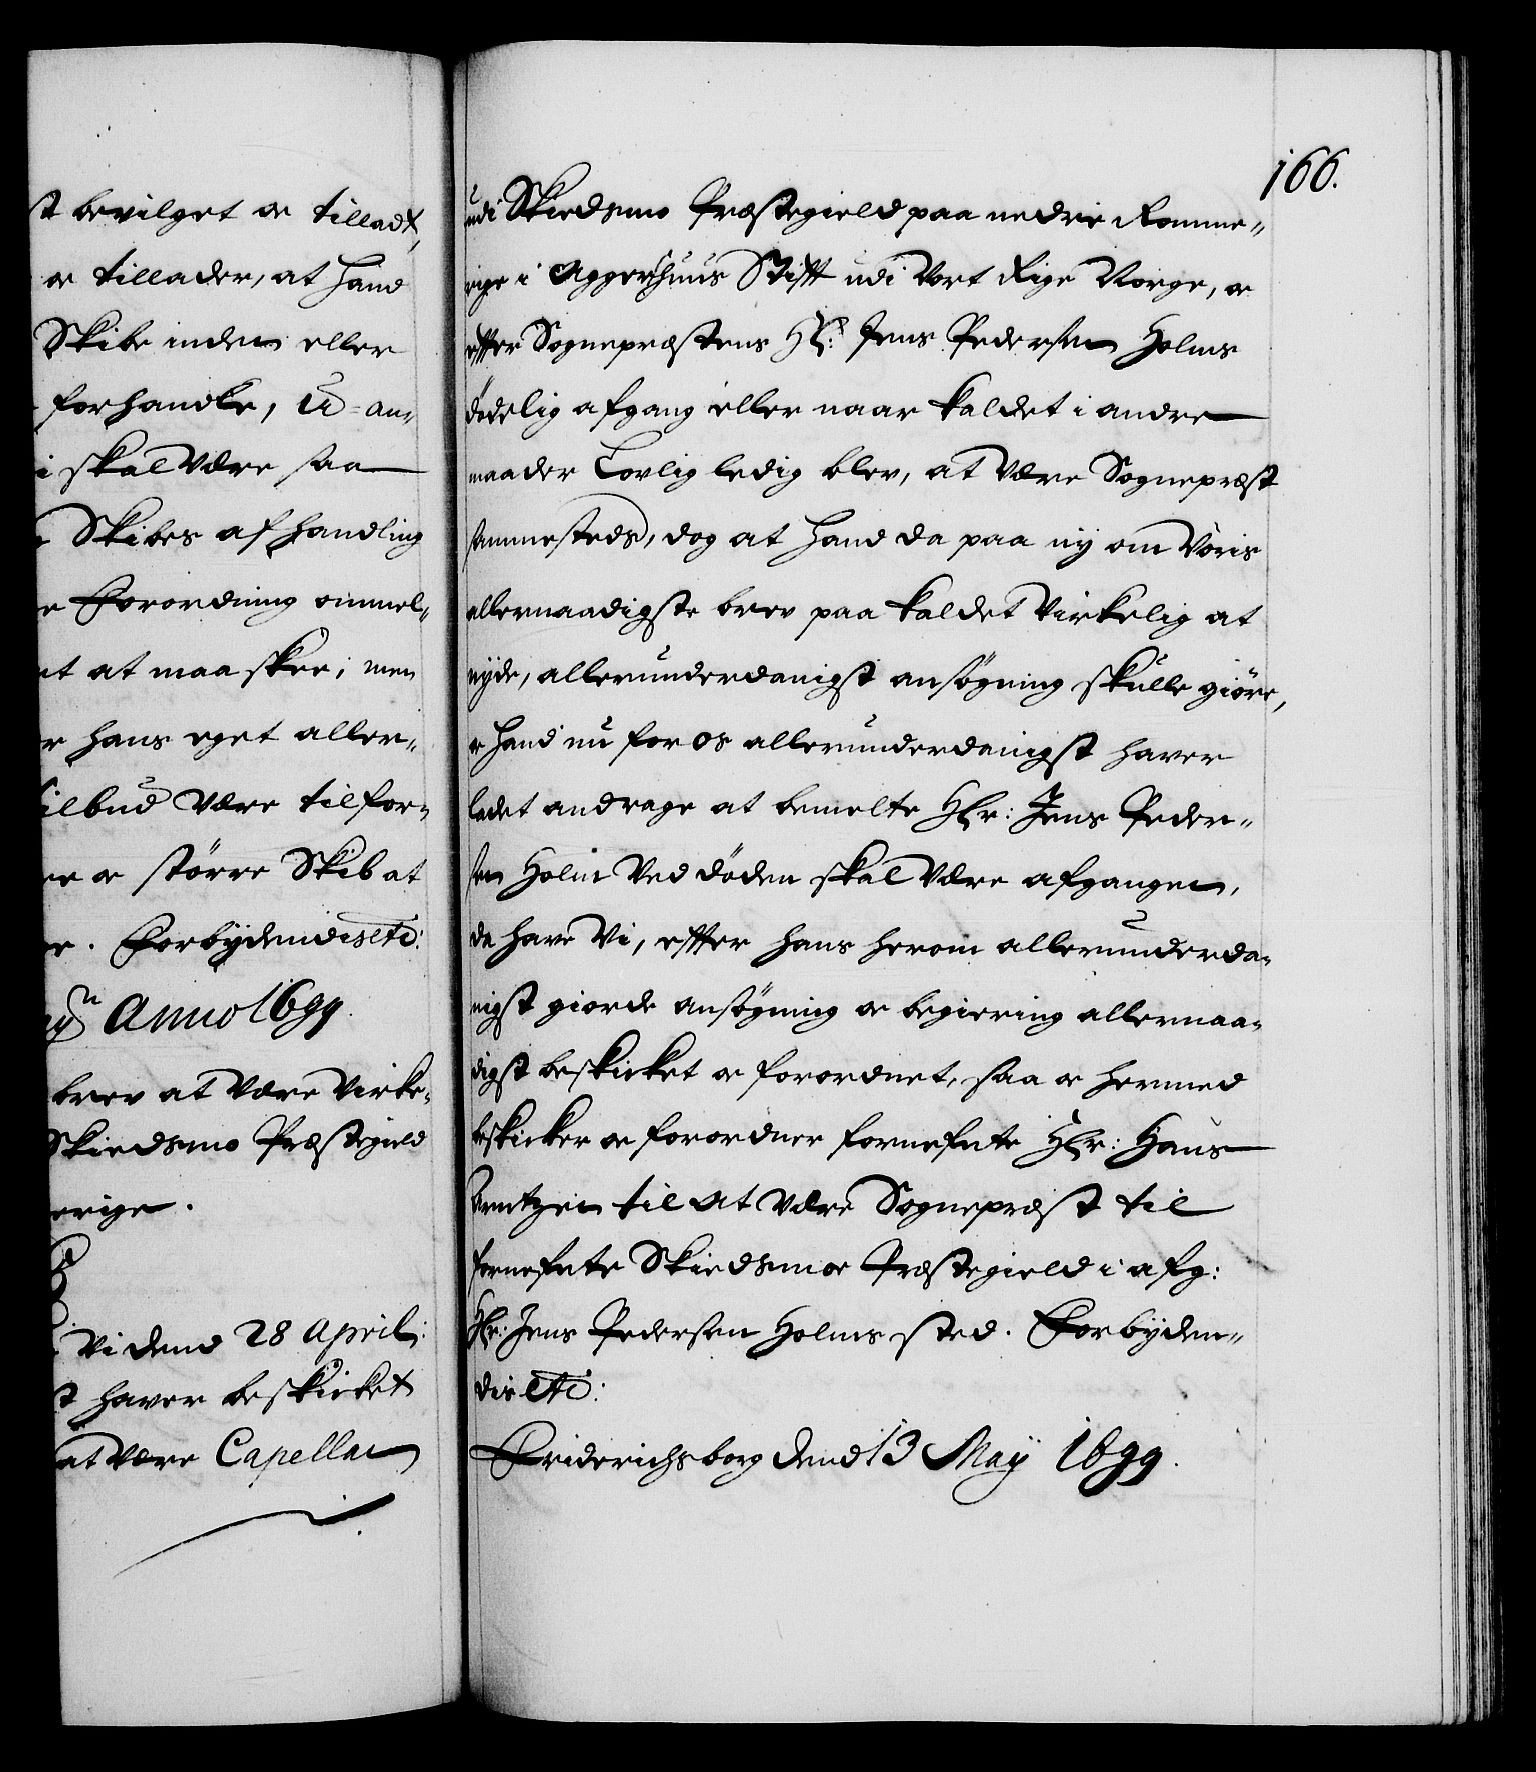 t bevilget oc tilladt,
oc tillader, at hand
Skibe inden eller
forhandle, U=an„
i skal være saa
Skibes afhandling
e Forordning ommel„
et at maa skee; men
r hans eget aller„
ilbud være tilfor„
er oc större Skib at
er. Forbydendis etc:
Anno 1699.
brev at være Virke„
Skiedsmo Præstegield
erige.
Vi dend 28 April:
t haver beskicket
at være Capellan
166.
udi Skiedsmo Præstegield paa nedre Romme„
rige i Aggershuus Stift udi Vort Rige Norge, oc
effter Sognepræstens Hr: Jens Pedersen Holms
dödelig afgang eller naar kaldet i andre
maader Lovlig ledig blev, at være Sognepræst
sammesteds, dog at hand da paa ny om Voris
allernaadigste brev paa kaldet Virkelig at
nyde, allerunderdanigst ansögning skulle giöre,
oc hand nu for os allerunderdanigst haver
ladet andrage at bemelte Hr: Jens Peder„
sen Holm Ved döden skal være afgangen,
da have Vi, effter hans herom allerunderda„
nigst giorde ansögning oc begiering allernaa„
digst beskicket oc forordnet, saa oc hermed
beskicker oc forordner fornefnte Hr: Hans
til at være Sognepræst til
fornefnte Skiedsmoe Præstegield i afg:
Hr: Jens Pedersen Holms sted. Forbyden„
dis etc:
Friderichsborg dend 13 Maÿ 1699.